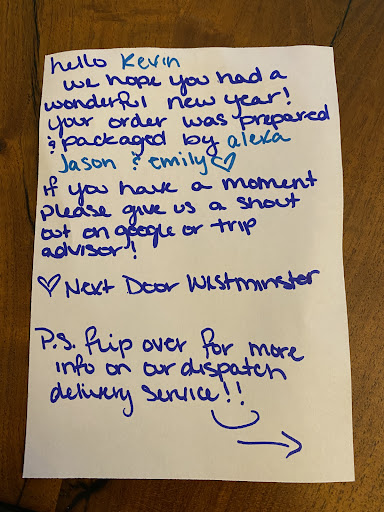 hello Kevin
we hope you had a
wonderful new year!
your order was prepared
& packaged by alexa
Jason & emily♡
if you have a moment
please give us a shout
out on google or trip
advisor!
♡ Next Door Westminster
P.S. flip over for more
info on our dispatch
delivery service!!